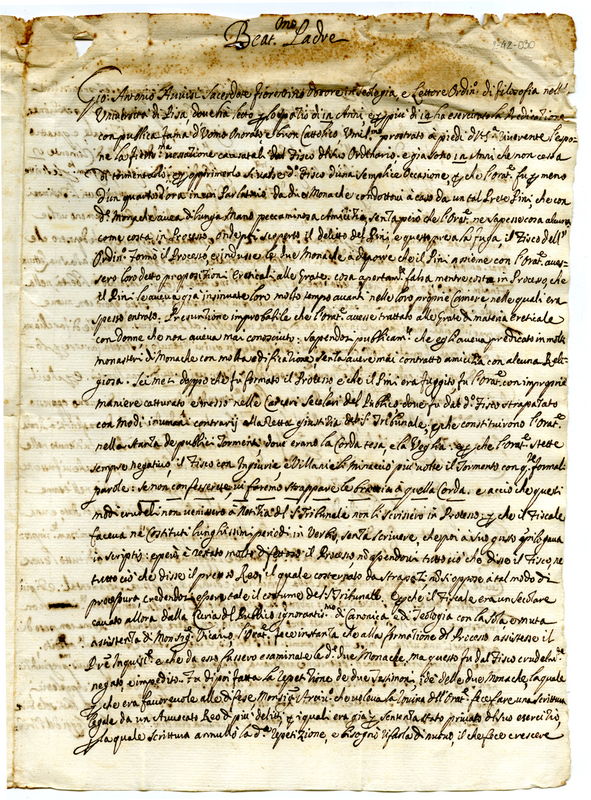 Beat.mo Padre
1942-030
Gio: Antonio Anuisi Sacerdote fiorentino Dottore in Teologia, e Lettore Ordin.o di filosofia nell'
Università di Pisa, doue hà letto p lo spatio di 12 Anni, e p più di 12 hà esercitato la Predicatione
con publica fama d'Uomo Onorato, e buon Cattolico. Umil.te prostrato à piedi di V.S. riuerente l'espo=
ne la fiera uessatione causatali dal Fisco di suo Ordinario. e già sono 12 Anni che non cessa
di tormentarlo, p opprimerlo si uale d.o Fisco d'una semplice Occasione, p che l'Orat.e fu p meno
d'un quarto d'ora in un Parlatorio da due Monache condottoui à caso da un tal Prete Pini, che con
d.e Monache aueua di lunga mano peccaminosa Amicitia, senza però che l'Orat.e ne sapesse cosa alcuna,
come costa in Processo, onde poi scoperto il delitto del Pini, e questo preso la fuga, il Fisco dell'
Ordin.o formò il Processo, e indusse le due Monache à deporre che il Pini assieme con l'Orat.e aues=
sero loro detto propositioni Ereticali alle Grate. cosa apertam.te falsa mentre costa in Processo, che
il Pini le aueua già insinuate loro molto tempo auanti nelle loro proprie Camere nelle quali era
spesso entrato. Presuntione improbabile che l'Orat.e auesse trattato alle Grate di materia ereticale
con donne che non aueua mai conosciuto. Sapendosi publicam.te che egli aueua predicato in molti
monasteri di Monache con molta edificatione, senza auere mai contratto amicitia con alcuna Reli=
giosa. Sei mesi doppo che fu formato il Processo, e che il Pini era fuggito fu l'Orat.e con improprie
maniere catturato e messo nelle Carceri Secolari del Publico doue fu dal d.o Fisco strapazzato
con modi inumani contrarij alla retta giustitia del S. Tribunale; p che constituirono l'Orat.e
nella stanza de publici Tormenti, doue erano la Corda tesa, e la Veglia: e p che l'Orat.e stette
sempre negatiuo il Fisco con Ingiurie e Villanie li minacciò più uolte il Tormento con q.te formali
parole: se non confesserete, ui faremo strappare le braccia à quella Corda. e acciò che questi
modi crudeli non uenissero à Notitia del S. Tribunale non li scrissero in Processo; p che il Fiscale
faceua ne' Costituti lunghissimi periodi in Verbis senza scriuere, che poi à suo gusto epilogaua
in scriptis: e però è restato molto difettoso il Processo, non essendoui tutto ciò che disse il Fisco, ne
tutto ciò che disse il preteso Reo, il quale costernato da strapazzi non si oppose à tal modo di
procedura credendo esser tale il costume del S. Tribunale. E p che il Fiscale era un Secolare
cauato allora dalla Curia del Publico ignorantiss.mo di Canonica, e di Teologia con la sola e muta
assistenza di Monsig.r Vicario, l'Orat.e fece instanza che alla formatione del Processo assistesse il
P.re Inquis.re e che da esso fussero esaminate le d.e due Monache, ma questo fu dal Fisco crudelm.te
negato, e impedito. Fu di poi fatta la repetitione de due Testimoni, cioè delle due Monache, la quale
p che era fauoreuole alle difese Monsig.r Arciu.o che uoleua la rouina dell'Orat.e fece fare una scrittura
legale da un Auuocato Reo di più delitti, p i quali era già p sentenza stato priuato di suo esercitio,
p la quale scrittura annullò la d.a repetitione, e bisognò rifarla di nuouo, il che fece crescere